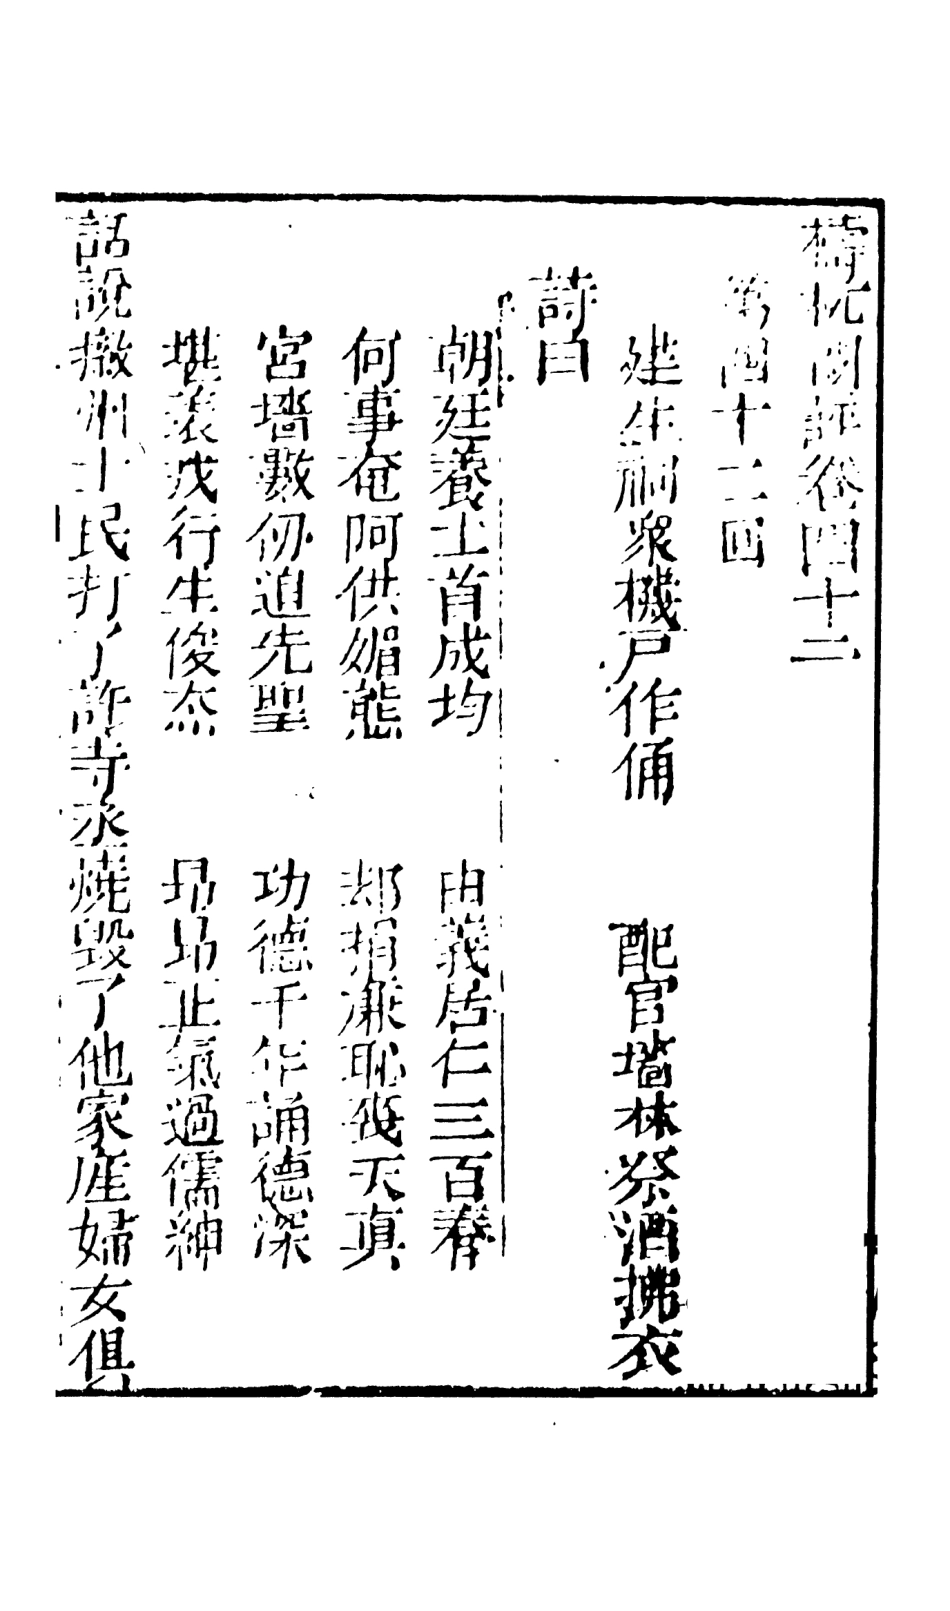 檮杌閒評卷四十二
第四十二回
建生祠衆機户作俑　配宫墙林祭酒拂衣
詩曰
朝廷養士首成均　由義居仁三百春
何事奄阿供媚態　却捐廉恥喪天眞
宫墻數仞迫先聖　功德千年誦德深
堪羡戊行生俊杰　昂昂正氣過儒紳
話說徽州士民打了許寺丞燒毀了他家産婦女俱